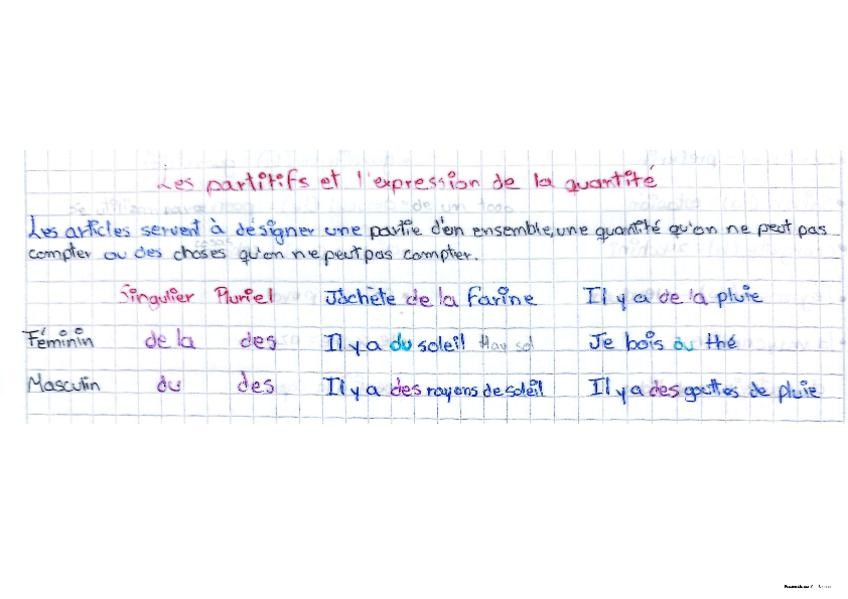 Les partitifs et l'expression de la quantité
Les articles servent à désigner une partie d'en ensemble, une quantité qu'on ne peut pas
compter ou des choses qu'on ne peut pas compter.
Singulier Pluriel J'achète de la farine Il y a de la pluie
Féminin de la des Il y a du soleil Hay sol Je bois du thé
Masculin du des Il y a des rayons de soleil Il y a des gouttes de pluie